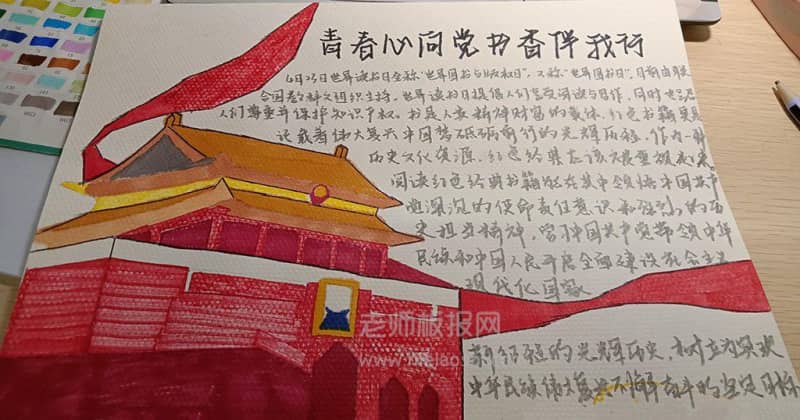 青春心向党书香伴我行
4月23日世界读书日全称"世界图书与版权日",又称"世界图书日",日期由联
合国教科文组织主持。世界读书日提倡人们享受阅读与写作,同时也呼
人们尊重并保护知识产权。书是人类精神财富的载体,红色书籍更是
记载着伟大复兴中国梦砥砺前行的光辉历程,作为一种
历史文化资源,红色经典应该大受重视
阅读红色经典书籍能在其中领悟中国共产
党深沉的使命责任意识和强烈的历
史担当精神,学习中国共产党带领中华
民族和中国人民开启全面建设社会主义
现代化国家
新征程的光辉历史,树立为实现
中华民族伟大复兴不懈奋斗的坚定目标
老师板报网